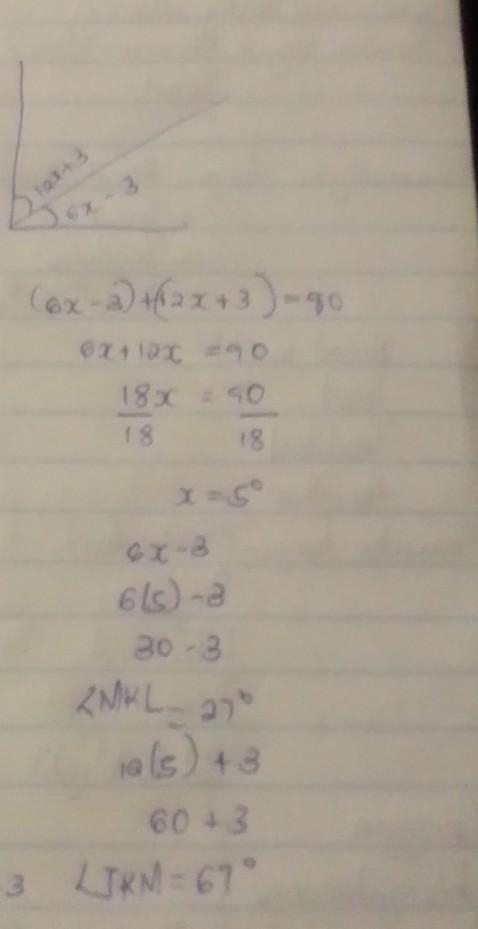 12x+3
6x - 3
(6x-3)+(12x+3)=90
6x+12x = 90
18x = 90
18 18
x = 5°
6x-3
6(5) -3
30 -3
∠MKL = 27°
12(5) +3
60 +3
3 ∠JKM = 67°